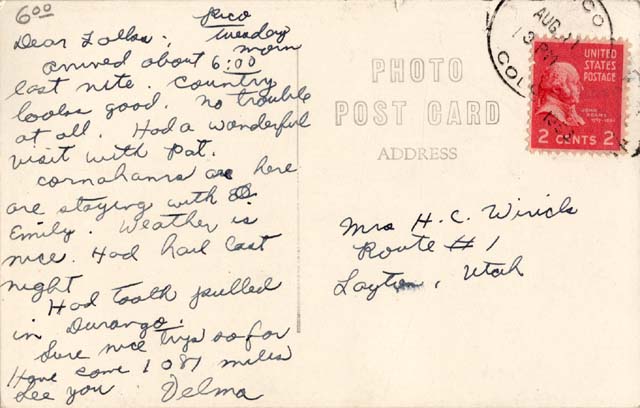 6 00
Rico
Tuesday
morn
Dear Folks:
arrived about 6:00
last nite. Country
looks good. no trouble
at all. Had a wonderful
visit with Pat.
are here
are staying with
Emily. Weather is
nice. Had hail last
night
Had tooth pulled
in Durango.
Sure nice trip so far
Have come 1087 miles
See you Velma
PHOTO
POST CARD
ADDRESS
Mrs H. C.
Route # 1
Layton, Utah
CO
AUG 11
PM
COL
UNITED
STATES
POSTAGE
JOHN
ADAMS
2 CENTS 2